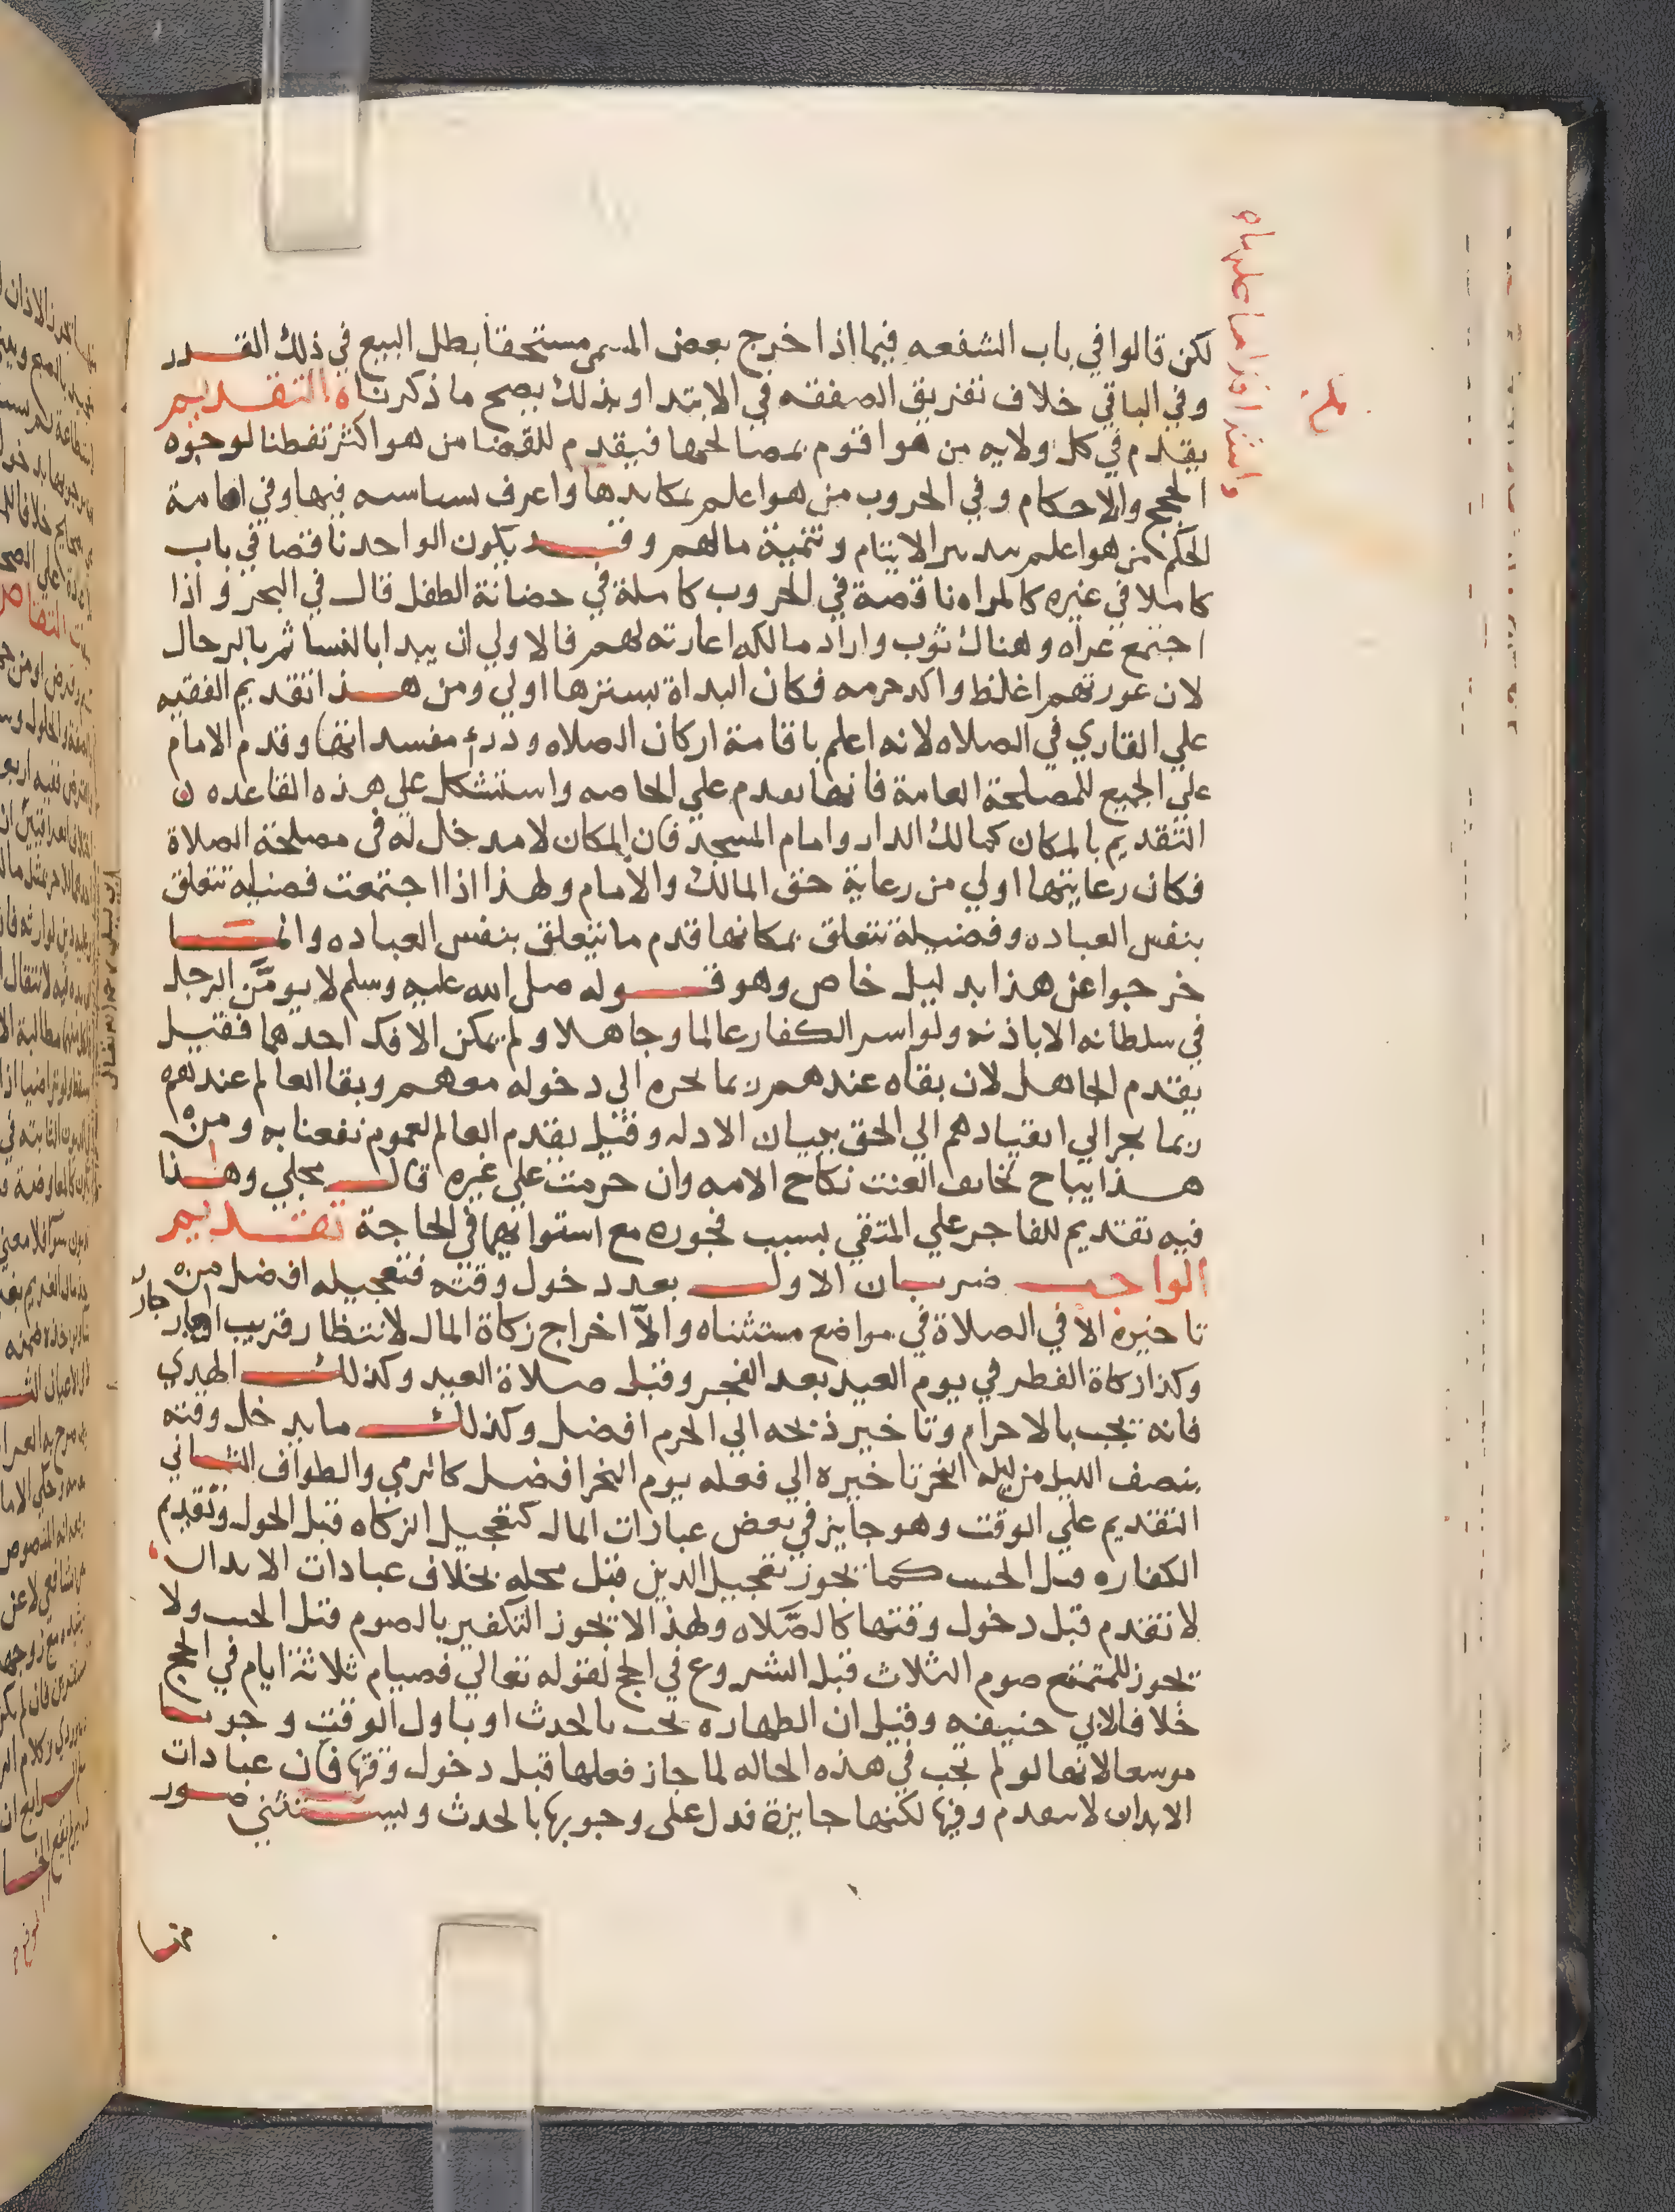 لكن قالوا في باب الشفعه فيما اذا خرج بعض المسمى مستحقا بطل البيع في ذلك القدر
وفي الباقي خلاف تفريق الصفقه في الابتدا وبذلك يصح ما ذكرناه التقديم
يقدم في كل ولايه من هو اقوم بمصالحها فيقدم للقضا من هو اكثر تفطنا لوجوه
الحجج والاحكام وفي الحروب من هو اعلم بمكايدها واعرف بسياسه فيها وفي امامة
الحكم من هو اعلم بتدبير الايتام وتنمية مالهم وقد يكون الواحد ناقصا في باب
كاملا في غيره كالمراه ناقصة في الحروب كاملة في حضانة الطفل قال في البحر واذا
اجتمع عراه وهناك ثوب واراد مالكه اعارته لهم فالاولي ان يبدا بالنسا ثم بالرجال
لان عورتهم اغلظ واكد حرمه فكان البداة بسترها اولي ومن هذا تقديم الفقيه
علي القاري في الصلاه لانه اعلم باقامة اركان الصلاه ودرء مفسداتها وقدم الامام
علي الجميع للمصلحة العامة فانها تقدم علي الخاصه واستشكل علي هذه القاعده
التقديم بالمكان كمالك الدار وامام المسجد فان المكان لا مدخل له في مصلحة الصلاة
فكان رعايتها اولي من رعاية حق المالك والامام ولهذا اذا اجتمعت فضيله تتعلق
بنفس العباده وفضيلة تتعلق بمكانها قدم ما يتعلق بنفس العباده وانما
خرجوا عن هذا بدليل خاص وهو قوله صلى الله عليه وسلم لا يومَّن الرجل
في سلطانه الا باذنه ولو اسر الكفار عالما وجاهلا ولم يمكن الا فك احدهما فقيل
يقدم الجاهل لان بقاه عندهم ربما يجره الي دخوله معهم وبقا العالم عندهم
ربما يجر الي انقيادهم الي الحق ببيان الادله وقيل يقدم العالم لعموم نفعنا به ومن
هذا يباح لخايف العنت نكاح الامه وان حرمت علي غيره قال مجلي وهذا
فيه تقديم للفاجر علي المتقي بسبب فجوره مع استوايهما في الحاجة تقديم
الواجب ضربان الاول بعد دخول وقته فتعجيله افضل من
تاخيره الا في الصلاة في مواضع مستثناه والا اخراج زكاة المال لانتظار قريب او جار
وكذا زكاة الفطر في يوم العيد بعد الفجر وقبل صلاة العيد وكذلك الهدي
فانه يجب بالاحرام وتاخير ذبحه الي الحرم افضل وكذلك ما يدخل وقته
بنصف الليل من ليله النحر تاخيره الي فعله يوم النحر افضل كالرمي والطواف الثاني
التقديم علي الوقت وهو جايز في بعض عبادات المال كتعجيل الزكاه قبل الحول وتقديم
الكفاره قبل الحنث كما يجوز تعجيل الدين قبل محله بخلاف عبادات الابدان
لا تقدم قبل دخول وقتها كالصَّلاه ولهذا لا يجوز التكفير بالصوم قبل الحنث ولا
يجوز للمتمتع صوم الثلاث قبل الشروع في الحج لقوله تعالي فصيام ثلاثة ايام في الحج
خلافا لابي حنيفه وقيل ان الطهاره تجب بالحدث او باول الوقت وجوبا
موسعا لانها لو لم تجب في هذه الحاله لما جاز فعلها قبل دخول وقتها فان عبادات
الابدان لا تتقدم وقتها لكنها جايزة فدل علي وجوبها بالحدث ويستثني صور
منها